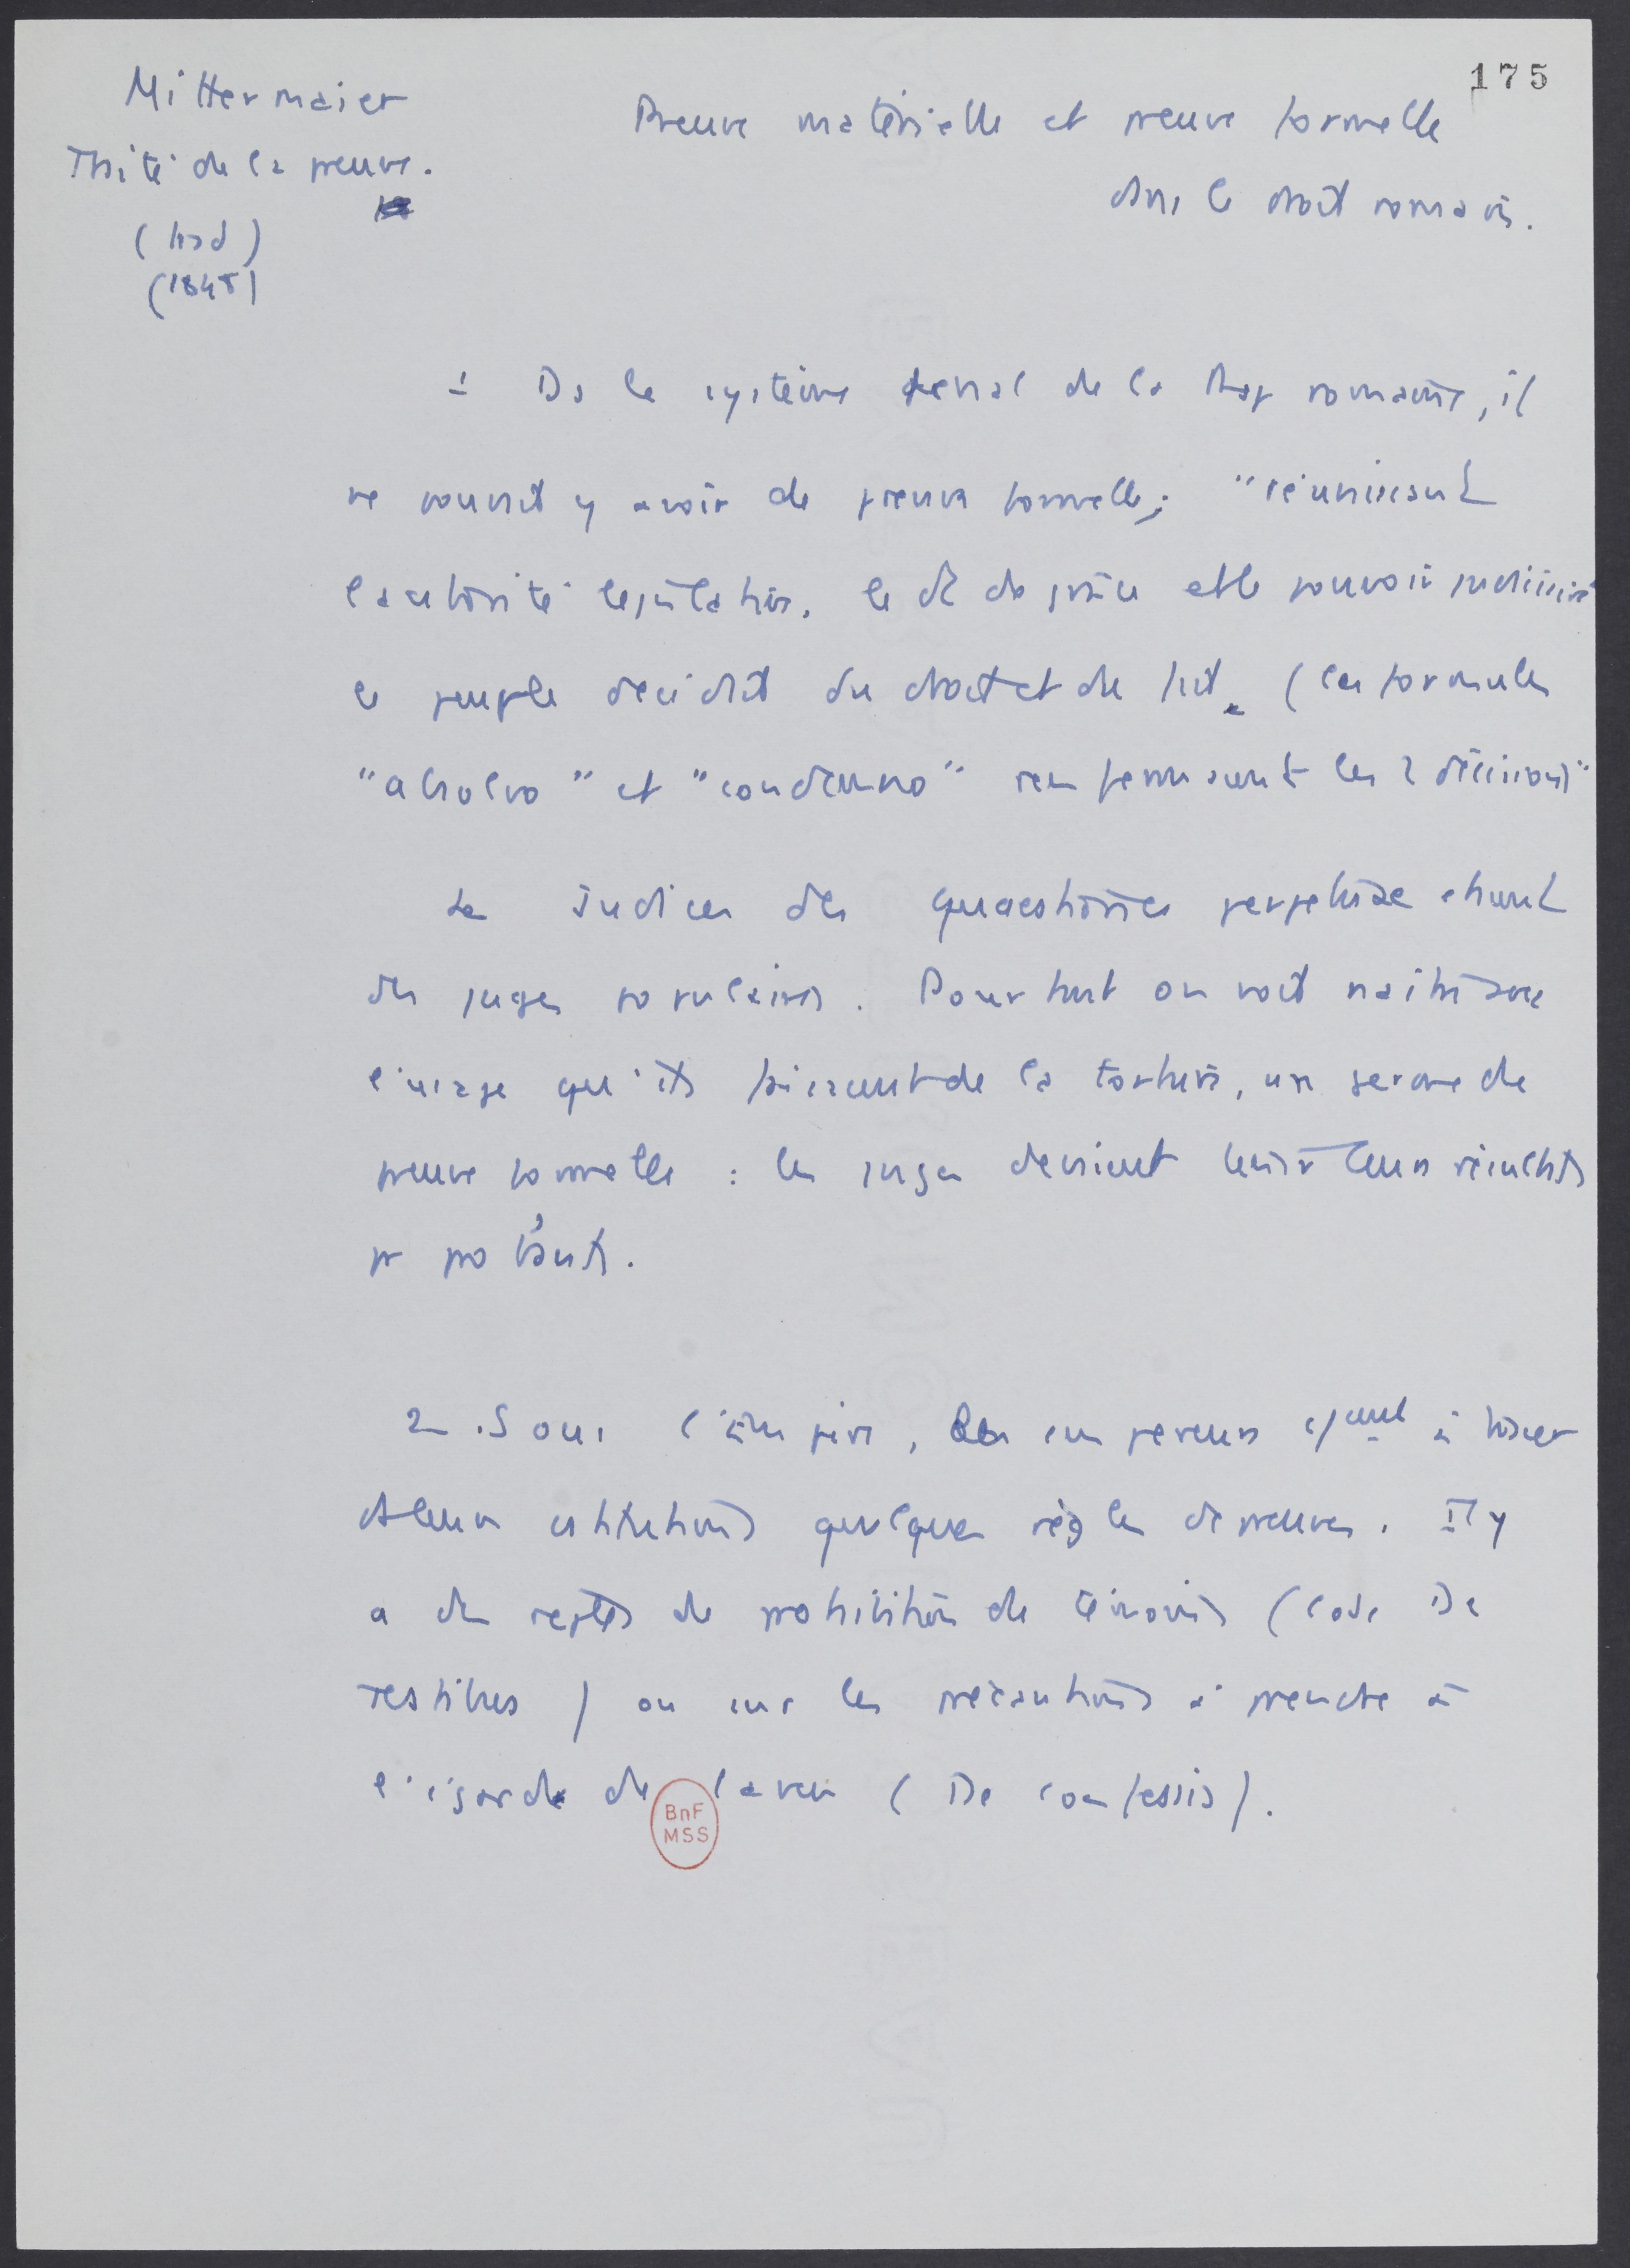 175
Mittermaier
Traité de la preuve.
(trad)
(1848)
Preuve matérielle et preuve formelle
dans le droit romain.
1 Ds le système pénal de la Rep romaine, il
ne pouvait y avoir de preuve formelle; "réunissant
l'autorité législative, le dt de grâce et le pouvoir judiciaire
le peuple décidait du droit et du fait (les formules
"absolvo" et "condemno" renfermaient les 2 décisions"
Les judices des quaestiones perpetuae étaient
des juges populaires. Pourtant on voit naître avec
l'usage qu'ils faisaient de la torture, un germe de
preuve formelle : les juges devaient tenir leurs résultats
pr probants.
2. Sous l'Empire, les empereurs à tracer
ds leurs constitutions quelques règles de preuves. Il y
a des règles de prohibition de témoins (Code De
Testibus) ou sur les précautions à prendre à
l'égard de l'aveu (De confessis).
BnF
MSS